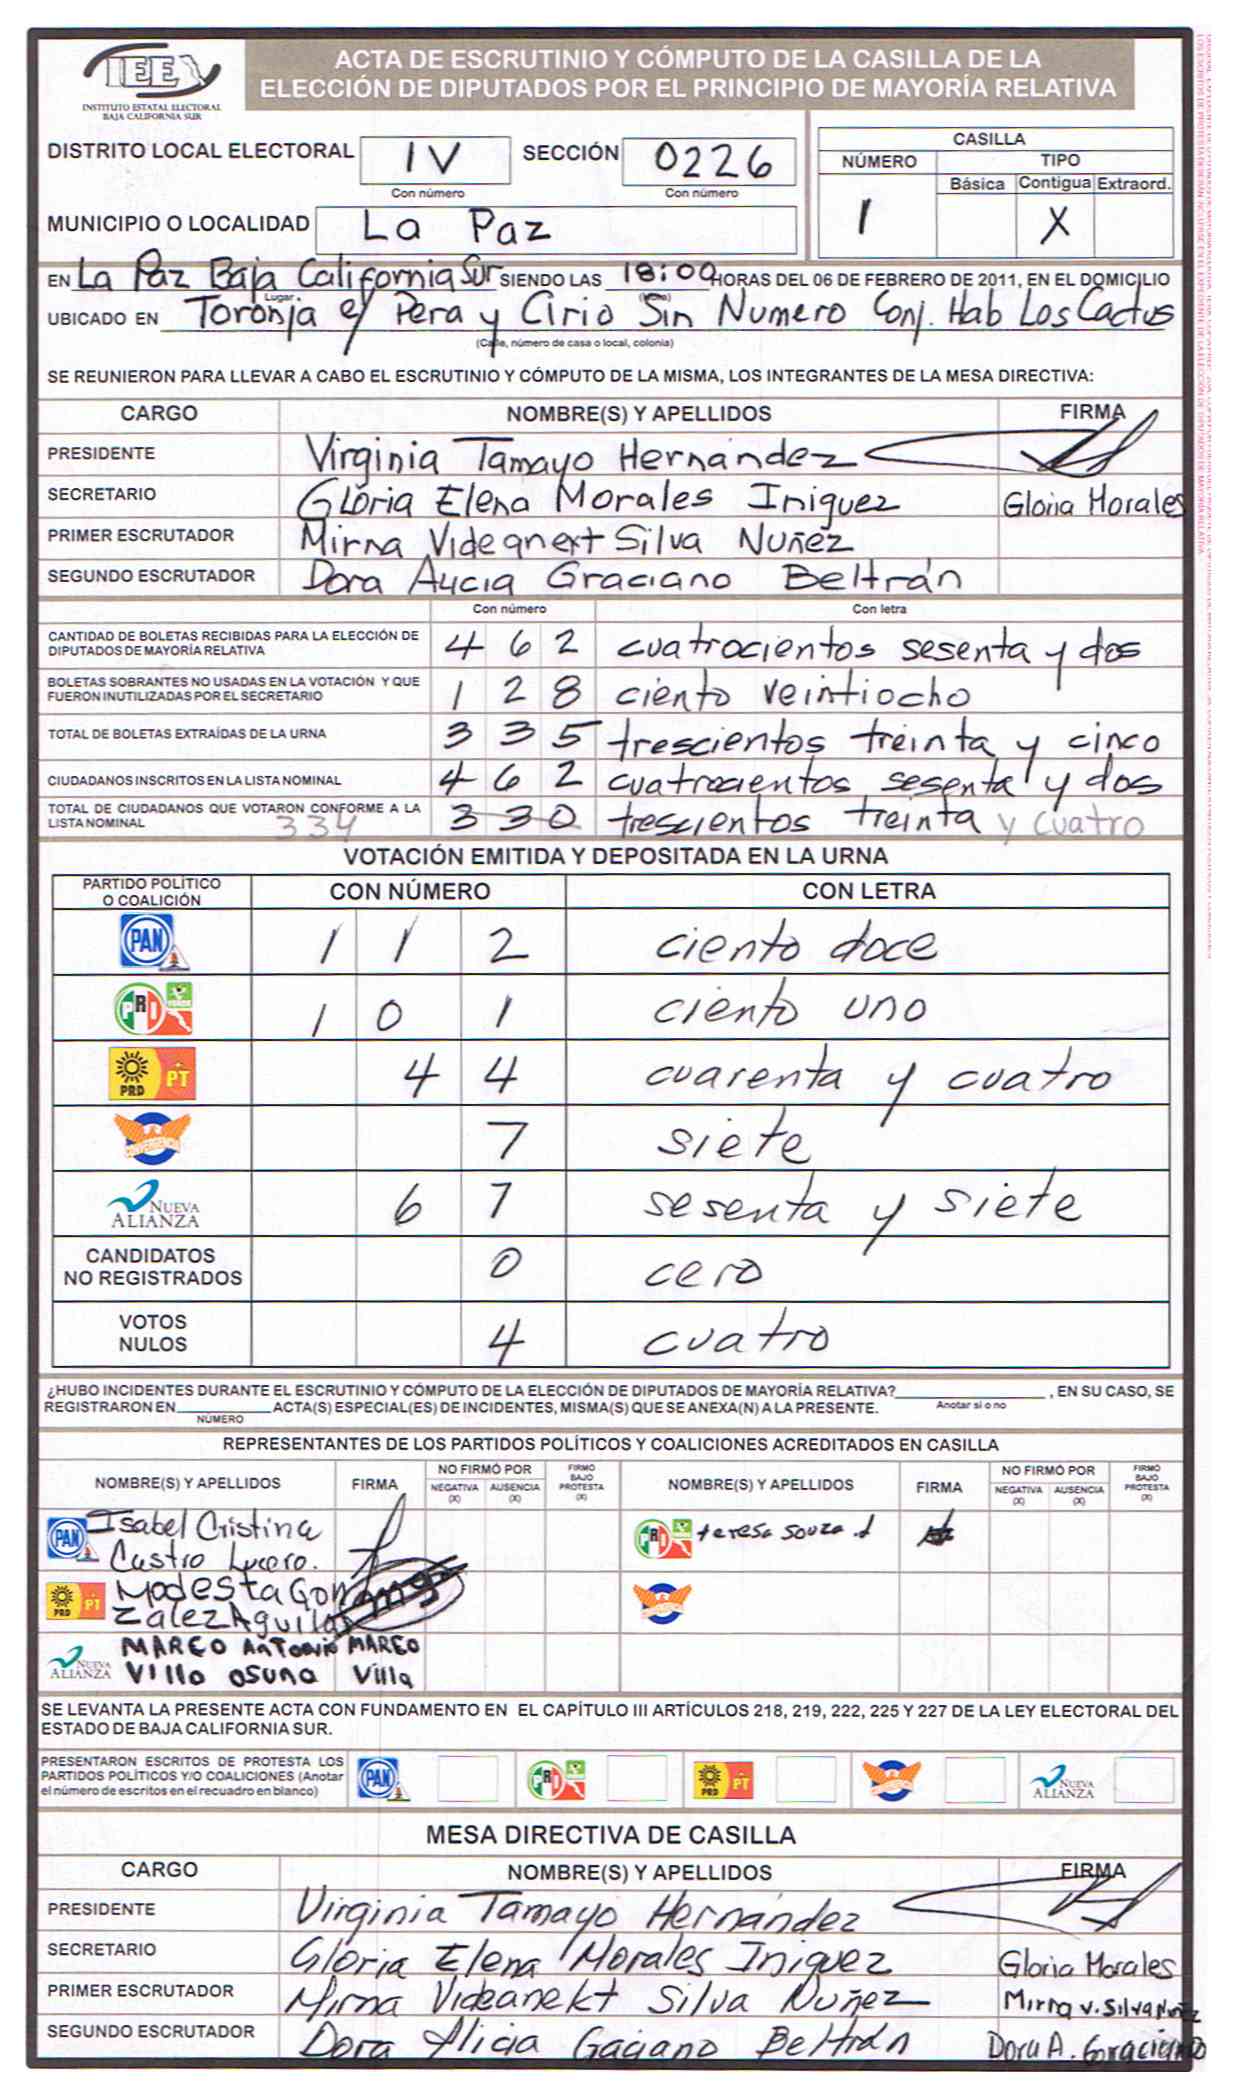 IEE
INSTITUTO ESTATAL ELECTORAL
BAJA CALIFORNIA SUR
ACTA DE ESCRUTINIO Y CÓMPUTO DE LA CASILLA DE LA
ELECCIÓN DE DIPUTADOS POR EL PRINCIPIO DE MAYORÍA RELATIVA
DISTRITO LOCAL ELECTORAL IV SECCIÓN 0226
Con número Con número
CASILLA
NÚMERO TIPO
Básica Contigua Extraord.
1 X
MUNICIPIO O LOCALIDAD La Paz
EN La Paz Baja California Sur SIENDO LAS 18:00 HORAS DEL 06 DE FEBRERO DE 2011, EN EL DOMICILIO
Lugar (Hora)
UBICADO EN Toronja e/ Pera y Cirio Sin Numero Conj. Hab Los Cactus
(Calle, número de casa o local, colonia)
SE REUNIERON PARA LLEVAR A CABO EL ESCRUTINIO Y CÓMPUTO DE LA MISMA, LOS INTEGRANTES DE LA MESA DIRECTIVA:
CARGO NOMBRE(S) Y APELLIDOS FIRMA
PRESIDENTE Virginia Tamayo Hernández
SECRETARIO Gloria Elena Morales Iniguez Gloria Morales
PRIMER ESCRUTADOR Mirna Videanext Silva Nuñez
SEGUNDO ESCRUTADOR Dora Alicia Graciano Beltrán
Con número Con letra
CANTIDAD DE BOLETAS RECIBIDAS PARA LA ELECCIÓN DE
DIPUTADOS DE MAYORÍA RELATIVA 4 6 2 cuatrocientos sesenta y dos
BOLETAS SOBRANTES NO USADAS EN LA VOTACIÓN Y QUE
FUERON INUTILIZADAS POR EL SECRETARIO 1 2 8 ciento veintiocho
TOTAL DE BOLETAS EXTRAÍDAS DE LA URNA 3 3 5 trescientos treinta y cinco
CIUDADANOS INSCRITOS EN LA LISTA NOMINAL 4 6 2 cuatrocientos sesenta y dos
TOTAL DE CIUDADANOS QUE VOTARON CONFORME A LA
LISTA NOMINAL 334 3 3 0 trescientos treinta y cuatro
VOTACIÓN EMITIDA Y DEPOSITADA EN LA URNA
PARTIDO POLÍTICO
O COALICIÓN CON NÚMERO CON LETRA
PAN 1 1 2 ciento doce
PRI 1 0 1 ciento uno
PRD PT 4 4 cuarenta y cuatro
CONVERGENCIA 7 siete
NUEVA
ALIANZA 6 7 sesenta y siete
CANDIDATOS
NO REGISTRADOS 0 cero
VOTOS
NULOS 4 cuatro
¿HUBO INCIDENTES DURANTE EL ESCRUTINIO Y CÓMPUTO DE LA ELECCIÓN DE DIPUTADOS DE MAYORÍA RELATIVA? , EN SU CASO, SE
Anotar si o no
REGISTRARON EN ACTA(S) ESPECIAL(ES) DE INCIDENTES, MISMA(S) QUE SE ANEXA(N) A LA PRESENTE.
NÚMERO
REPRESENTANTES DE LOS PARTIDOS POLÍTICOS Y COALICIONES ACREDITADOS EN CASILLA
NOMBRE(S) Y APELLIDOS FIRMA NO FIRMÓ POR NEGATIVA (X) AUSENCIA (X) FIRMÓ BAJO PROTESTA (X) NOMBRE(S) Y APELLIDOS FIRMA NO FIRMÓ POR NEGATIVA (X) AUSENCIA (X) FIRMÓ BAJO PROTESTA (X)
PAN Isabel Cristina
Castro Lucero.
PRI teresa souza.
PRD PT Modesta Gon
zalez Aguilar
CONVERGENCIA
NUEVA
ALIANZA MARCO AnTonio MARCO
Villa osuna Villa
SE LEVANTA LA PRESENTE ACTA CON FUNDAMENTO EN EL CAPÍTULO III ARTÍCULOS 218, 219, 222, 225 Y 227 DE LA LEY ELECTORAL DEL
ESTADO DE BAJA CALIFORNIA SUR.
PRESENTARON ESCRITOS DE PROTESTA LOS
PARTIDOS POLÍTICOS Y/O COALICIONES (Anotar
el número de escritos en el recuadro en blanco)
PAN PRI PRD PT CONVERGENCIA NUEVA ALIANZA
MESA DIRECTIVA DE CASILLA
CARGO NOMBRE(S) Y APELLIDOS FIRMA
PRESIDENTE Virginia Tamayo Hernández
SECRETARIO Gloria Elena Morales Iniguez Gloria Morales
PRIMER ESCRUTADOR Mirna Videanekt Silva Nuñez Mirna V. Silva Nuñez
SEGUNDO ESCRUTADOR Dora Alicia Gaciano Beltrán Dora A. Graciano